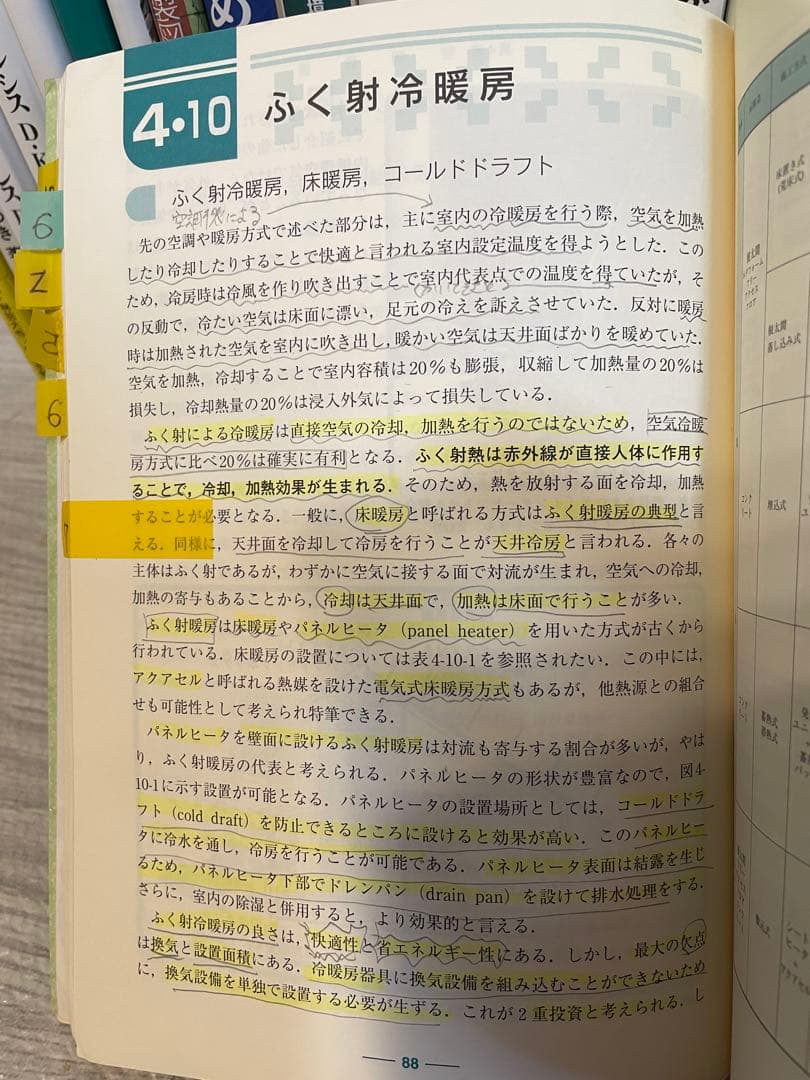 4・10
ふく射冷暖房
ふく射冷暖房，床暖房，コールドドラフト
空調機による
先の空調や暖房方式で述べた部分は，主に室内の冷暖房を行う際，空気を加熱
したり冷却したりすることで快適と言われる室内設定温度を得ようとした．この
ため，冷房時は冷風を作り吹き出すことで室内代表点での温度を得ていたが，そ
の反動で，冷たい空気は床面に漂い，足元の冷えを訴えさせていた．反対に暖房
時は加熱された空気を室内に吹き出し，暖かい空気は天井面ばかりを暖めていた．
空気を加熱，冷却することで室内容積は20％も膨張，収縮して加熱量の20％は
損失し，冷却熱量の20％は浸入外気によって損失している．
ふく射による冷暖房は直接空気の冷却，加熱を行うのではないため，空気冷暖
房方式に比べ20％は確実に有利となる．ふく射熱は赤外線が直接人体に作用す
ることで，冷却，加熱効果が生まれる．そのため，熱を放射する面を冷却，加熱
することが必要となる．一般に，床暖房と呼ばれる方式はふく射暖房の典型と言
える．同様に，天井面を冷却して冷房を行うことが天井冷房と言われる．各々の
主体はふく射であるが，わずかに空気に接する面で対流が生まれ，空気への冷却，
加熱の寄与もあることから，冷却は天井面で，加熱は床面で行うことが多い．
ふく射暖房は床暖房やパネルヒータ（panel heater）を用いた方式が古くから
行われている．床暖房の設置については表4-10-1を参照されたい．この中には，
アクアセルと呼ばれる熱媒を設けた電気式床暖房方式もあるが，他熱源との組合
せも可能性として考えられ特筆できる．
パネルヒータを壁面に設けるふく射暖房は対流も寄与する割合が多いが，やは
り，ふく射暖房の代表と考えられる．パネルヒータの形状が豊富なので，図4-
10-1に示す設置が可能となる．パネルヒータの設置場所としては，コールドドラ
フト（cold draft）を防止できるところに設けると効果が高い．このパネルヒー
タに冷水を通し，冷房を行うことが可能である．パネルヒータ表面は結露を生じ
るため，パネルヒータ下部でドレンパン（drain pan）を設けて排水処理をする．
さらに，室内の除湿と併用すると，より効果的と言える．
ふく射冷暖房の良さは，快適性と省エネルギー性にある．しかし，最大の欠点
は換気と設置面積にある．冷暖房器具に換気設備を組み込むことができないため
に，換気設備を単独で設置する必要が生ずる．これが2重投資と考えられる．し
88
6
2
6
床置き式
根太間
落し込み式
埋込式
蓄熱式